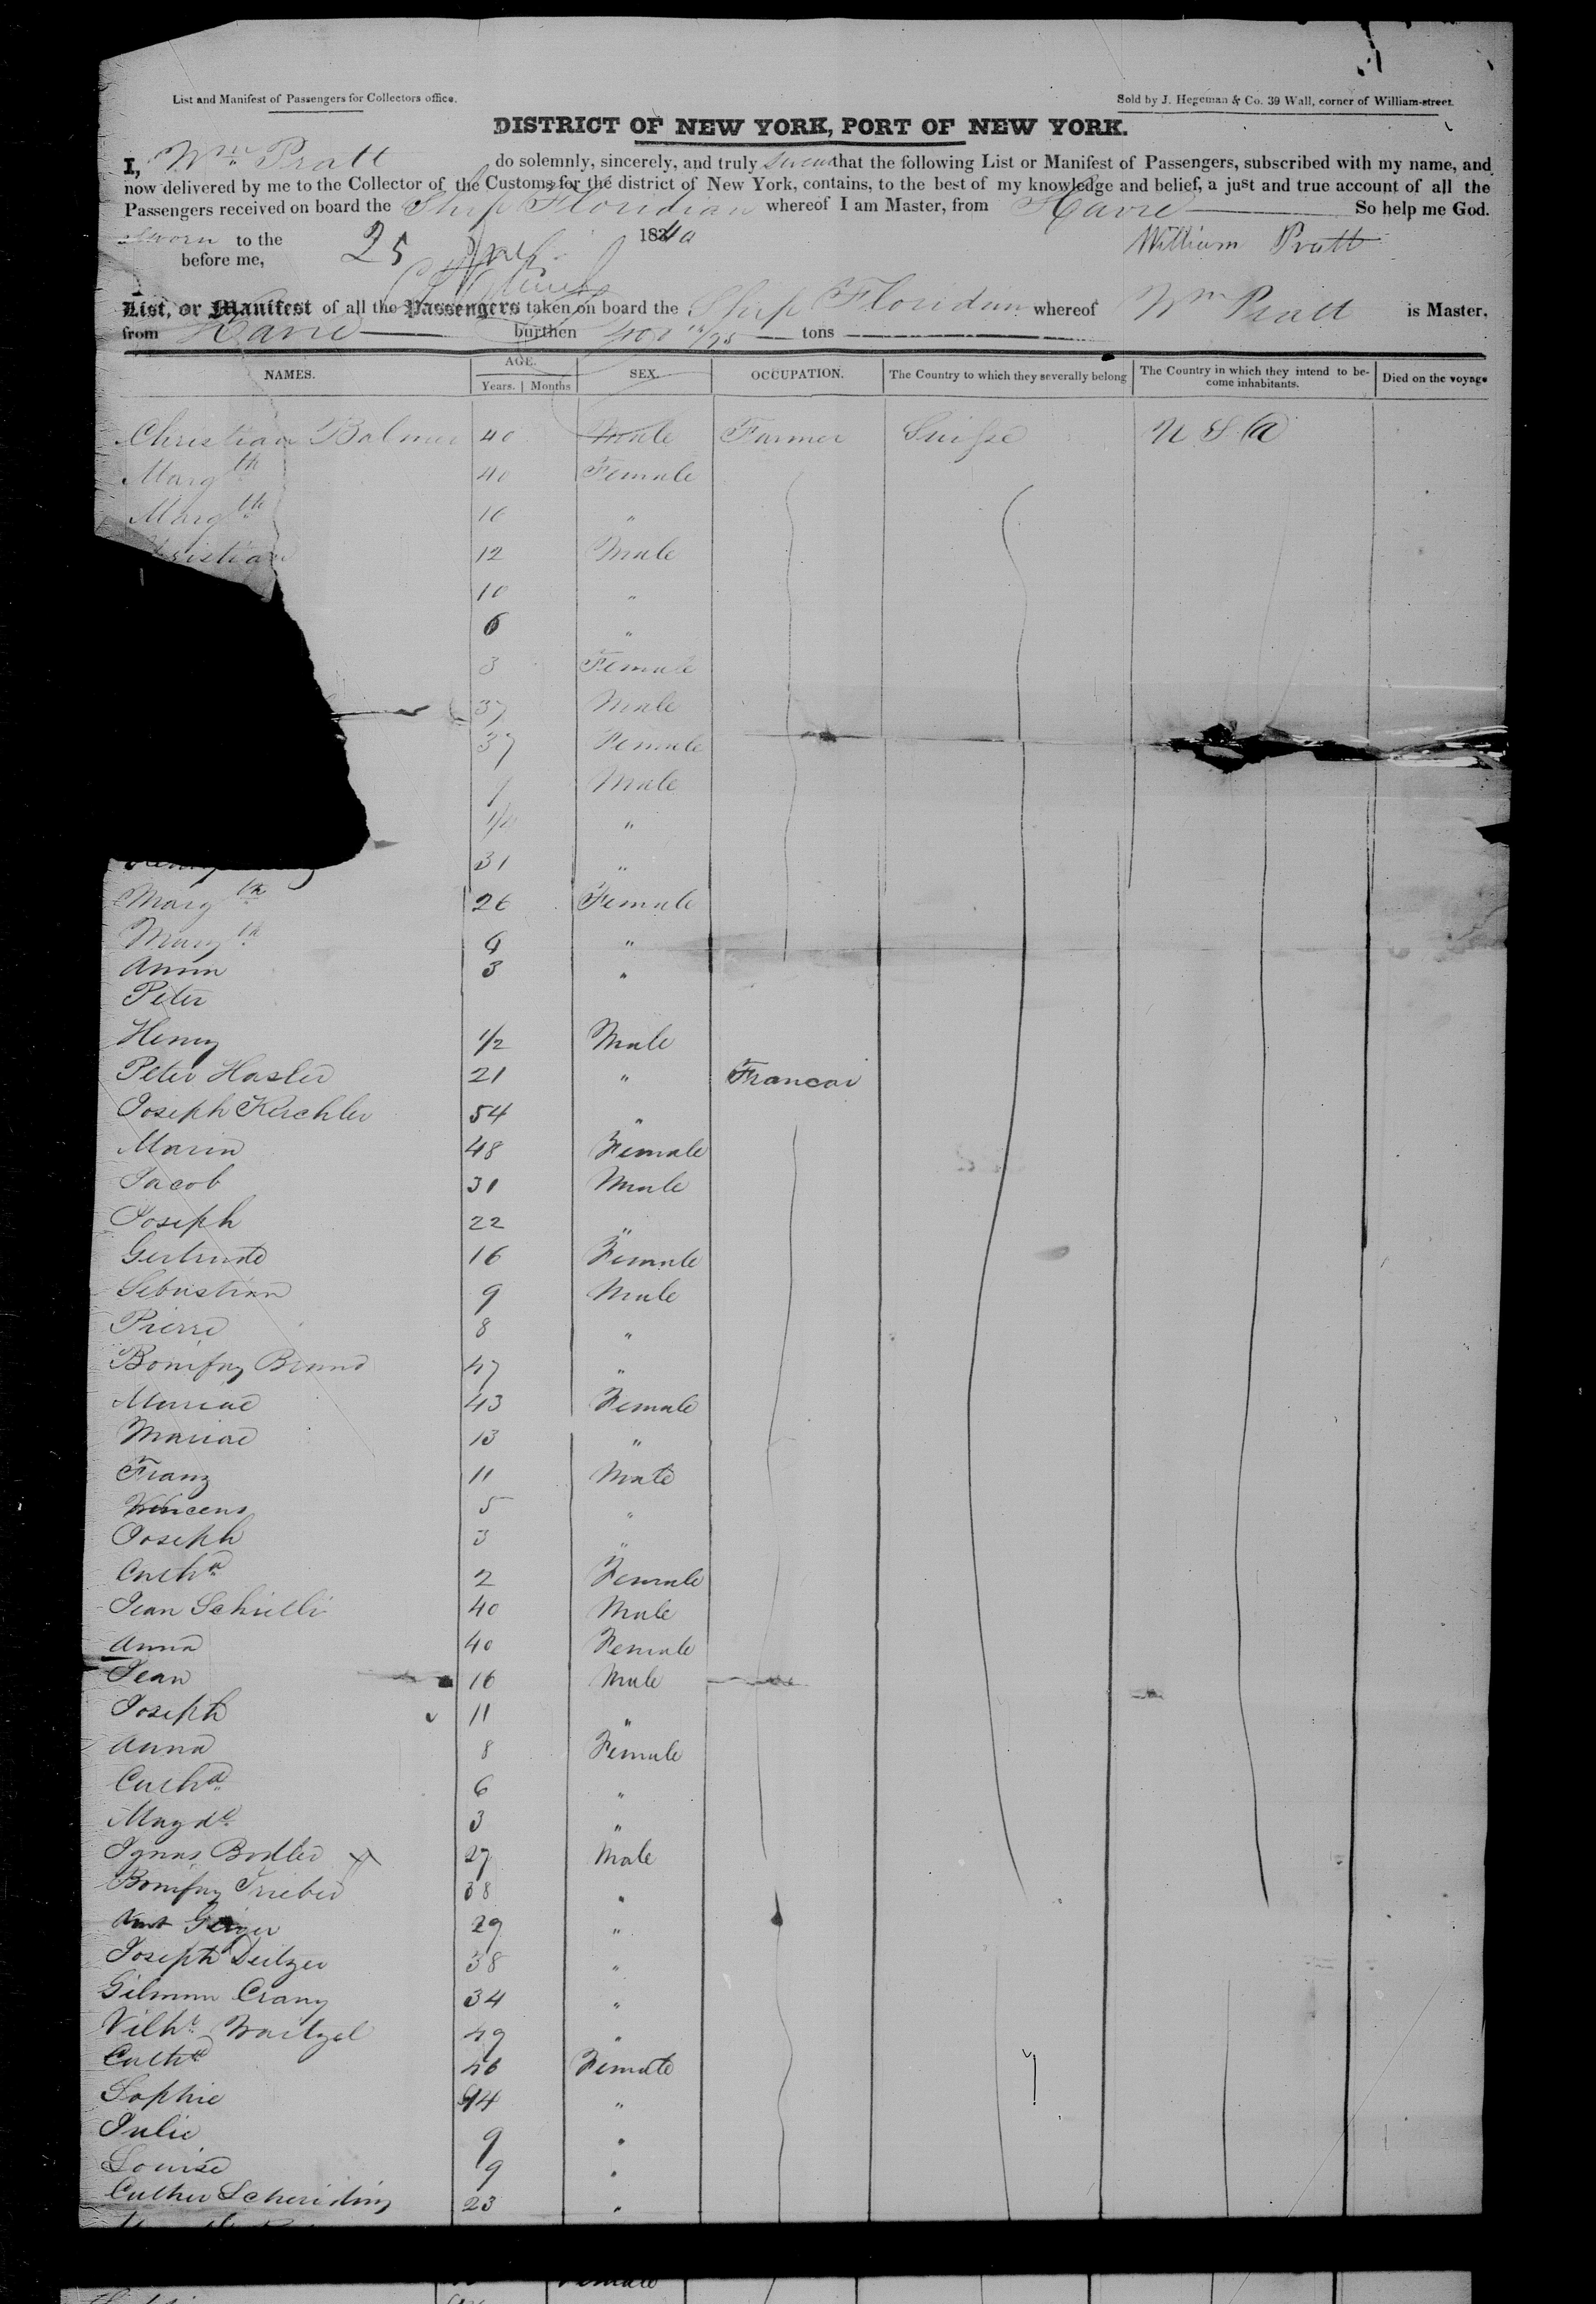 List and Manifest of Passengers for Collectors office.
Sold by J. Hegeman & Co. 39 Wall, corner of William-street.
DISTRICT OF NEW YORK, PORT OF NEW YORK.
I, Wm Pratt do solemnly, sincerely, and truly swear that the following List or Manifest of Passengers, subscribed with my name, and
now delivered by me to the Collector of the Customs for the district of New York, contains, to the best of my knowledge and belief, a just and true account of all the
Passengers received on board the Ship Floridian whereof I am Master, from Havre So help me God.
Sworn to the 25 1840 William Pratt
before me,
List, or Manifest of all the Passengers taken on board the Ship Floridian whereof Wm Pratt is Master,
from Havre burthen tons
NAMES. AGE. SEX. OCCUPATION. The Country to which they severally belong The Country in which they intend to be-come inhabitants. Died on the voyage
Years. | Months
Christian Balmer 40 Male Farmer Suisse U S A
Margth 40 Female
Margth 16 "
ristian 12 Male
10 "
6 "
3 Female
37 Male
37 Female
Male
"
31 "
Margth 26 Female
Margth "
Anna 3 "
Peter
Henry 1/2 Male
Peter Hasler 21 "
Joseph Kerchler 54 "
Maria 48 Female
Jacob 31 Male
Joseph 22 "
Gertrude 16 Female
Sebastian 9 Male
Pierre 8 "
Bonifaz 47 "
Mariae 43 Female
Mariae 13 "
Franz 11 Male
Vincens 5 "
Joseph 3 "
Catha 2 Female
Jean 40 Male
Anna 40 Female
Jean 16 Male
Joseph 11 "
Anna 8 Female
Catha 6 "
Magde 3 "
Ignas 27 Male
Bonifaz Trieber 38 "
Geiger 29 "
Joseph Deitzer 38 "
34 "
Vilh. Waitzel 49 "
Catha 46 Female
Sophie 14 "
Julie 9 "
Louise 9 "
23 "
Female